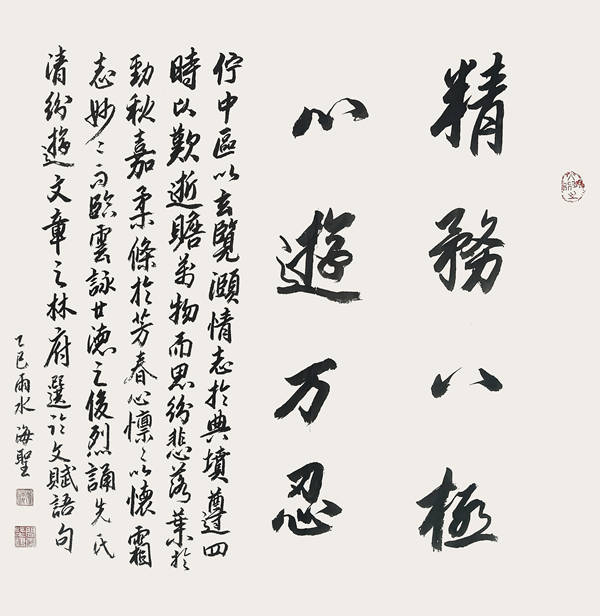 精務八極
心遊万忍
佇中區以玄覽頤情志於典墳遵四
時以歎逝瞻萬物而思紛悲落葉於
勁秋嘉柔條於芳春心懍〻以懷霜
志妙〻而臨雲詠世德之俊烈誦先民
清紛遊文章之林府選於文賦語句
乙巳雨水 海聖